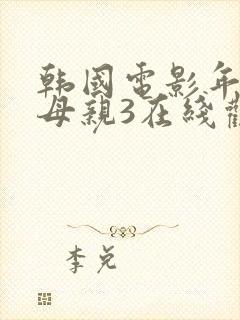 韩國電影年
母親3在綫
李兑